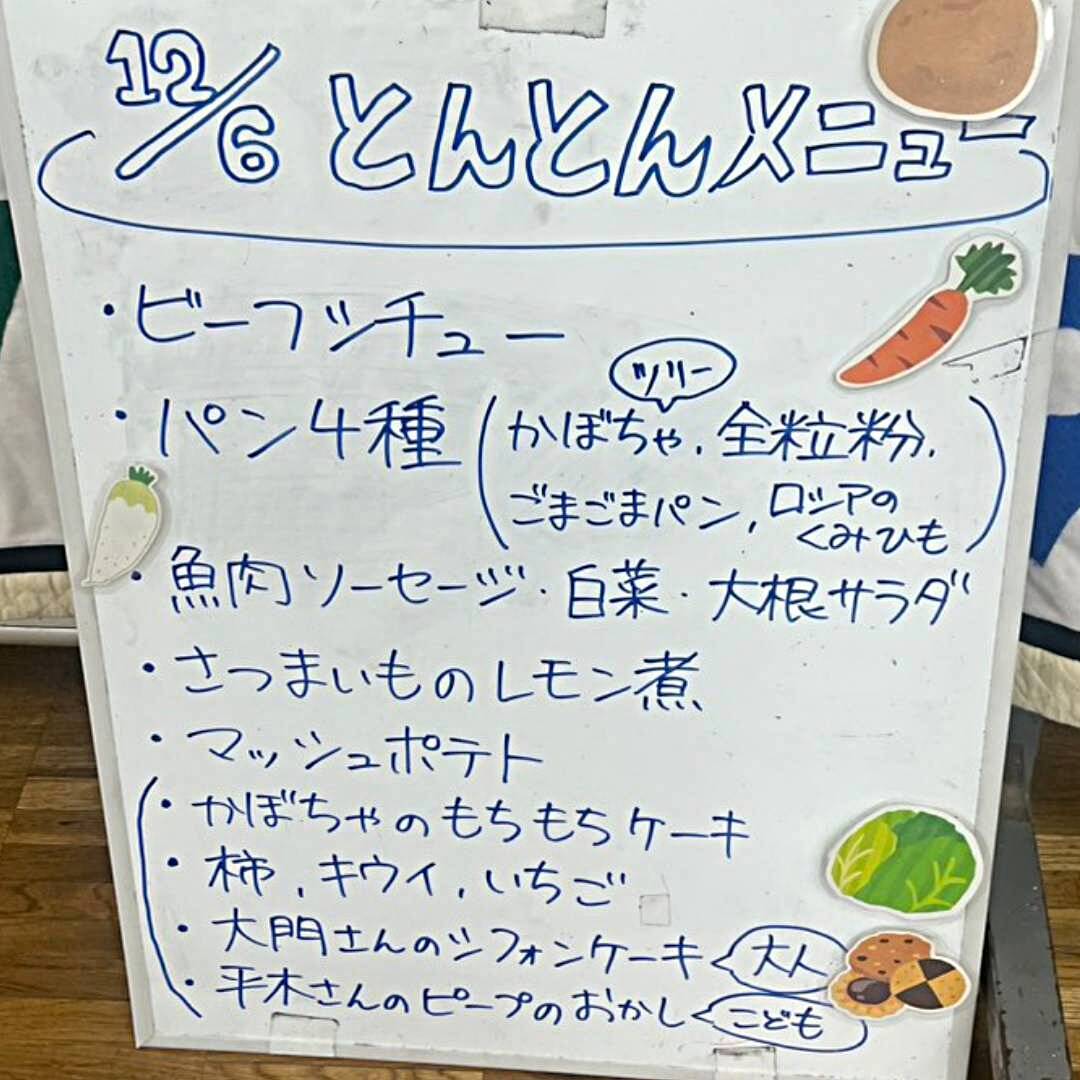 12/6 とんとんメニュー
・ビーフシチュー
ツリー
・パン4種(かぼちゃ,全粒粉,
ごまごまパン,ロシアの
くみひも)
・魚肉ソーセージ・白菜・大根サラダ
・さつまいものレモン煮
・マッシュポテト
・かぼちゃのもちもちケーキ
・柿,キウイ,いちご
・大門さんのシフォンケーキ 大人
・平木さんのピープのおかし こども